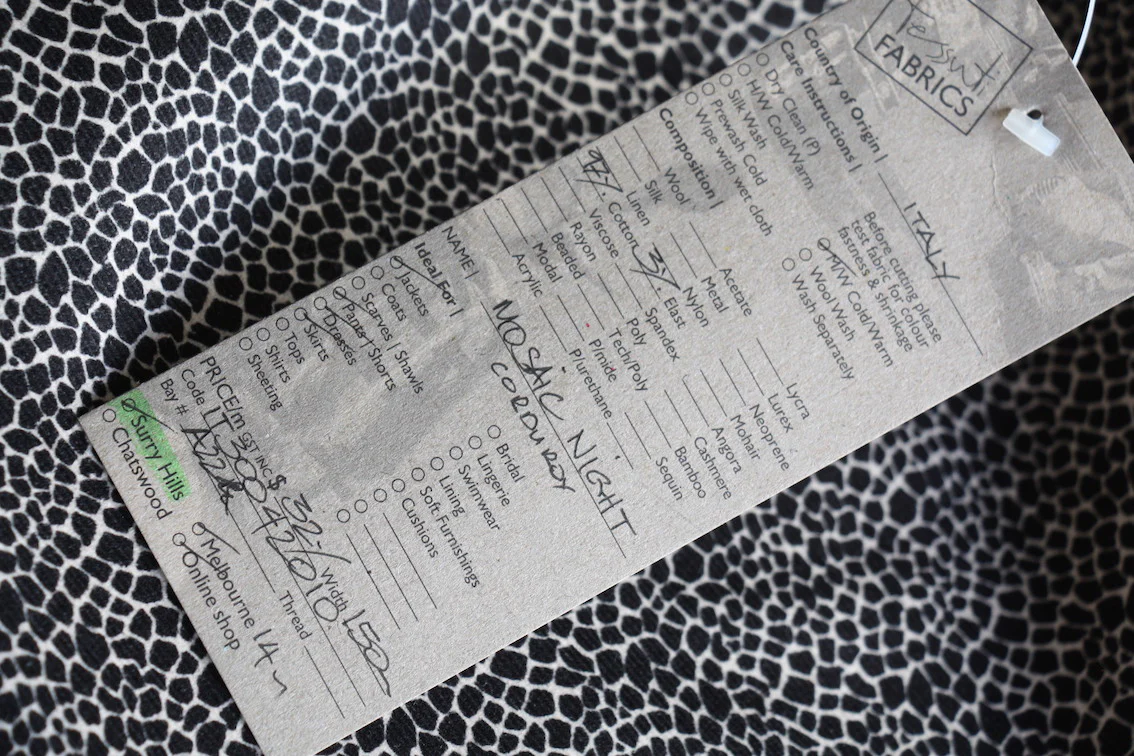 Tessuti
FABRICS
Country of Origin | ITALY
Care Instructions |
Before cutting please
test fabric for colour
fastness & shrinkage
Dry Clean (P)
H/W Cold/Warm
Silk Wash
Prewash Cold
Wipe with wet cloth
M/W Cold/Warm
Wool Wash
Wash Separately
Composition |
Wool
Silk
Linen
97% Cotton
Viscose
Rayon
Beaded
Modal
Acrylic
Acetate
Metal
Nylon
3% Elast
Spandex
Poly
Tech/Poly
P/mide
P/urethane
Lycra
Lurex
Neoprene
Mohair
Angora
Cashmere
Bamboo
Sequin
NAME | MOSAIC NIGHT
CORDUROY
Ideal For |
Jackets
Coats
Scarves | Shawls
Pants | Shorts
Dresses
Skirts
Tops
Shirts
Sheeting
Bridal
Lingerie
Swimwear
Lining
Soft Furnishings
Cushions
PRICE/m GST INC $ 32./ Width 150
Code IT30042010
Bay # Thread
Surry Hills
Chatswood
Melbourne 14m
Online shop